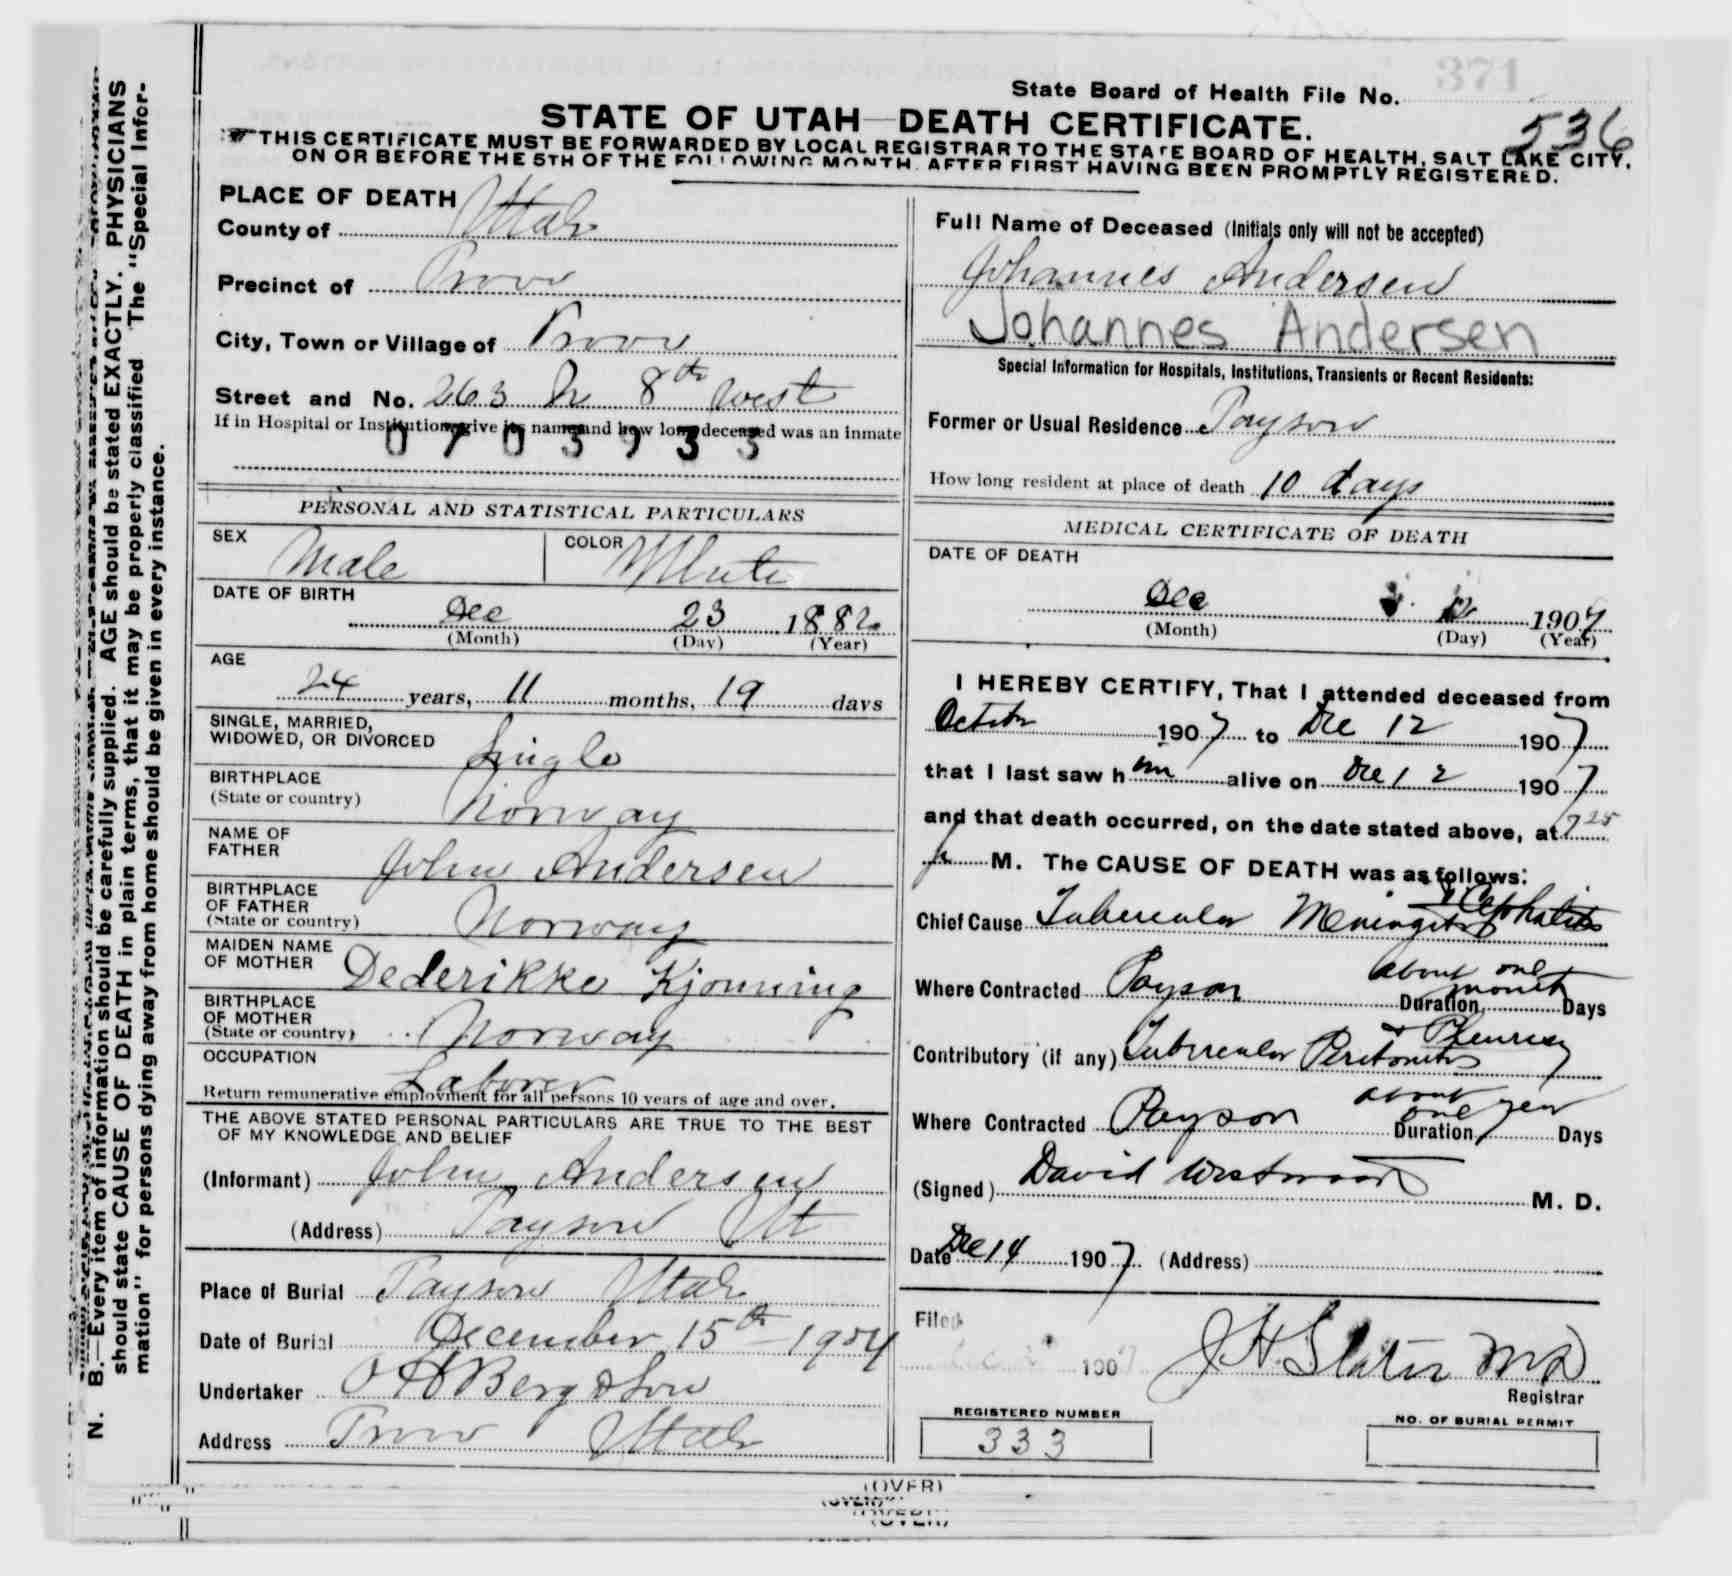 371
State Board of Health File No.
STATE OF UTAH—DEATH CERTIFICATE.
536
THIS CERTIFICATE MUST BE FORWARDED BY LOCAL REGISTRAR TO THE STATE BOARD OF HEALTH, SALT LAKE CITY,
ON OR BEFORE THE 5TH OF THE FOLLOWING MONTH, AFTER FIRST HAVING BEEN PROMPTLY REGISTERED.
PLACE OF DEATH
County of Utah
Precinct of Provo
City, Town or Village of Provo
Street and No. 263 N 8th West
If in Hospital or Institution, give its name and how long deceased was an inmate
0703933
PERSONAL AND STATISTICAL PARTICULARS
SEX Male COLOR White
DATE OF BIRTH
Dec 23 1882
(Month) (Day) (Year)
AGE
24 years, 11 months, 19 days
SINGLE, MARRIED,
WIDOWED, OR DIVORCED Single
BIRTHPLACE
(State or country) Norway
NAME OF
FATHER John Andersen
BIRTHPLACE
OF FATHER
(State or country) Norway
MAIDEN NAME
OF MOTHER Dederikke Kjonning
BIRTHPLACE
OF MOTHER
(State or country) Norway
OCCUPATION
Laborer
Return remunerative employment for all persons 10 years of age and over.
THE ABOVE STATED PERSONAL PARTICULARS ARE TRUE TO THE BEST
OF MY KNOWLEDGE AND BELIEF
(Informant) John Andersen
(Address) Payson Ut
Place of Burial Payson Utah
Date of Burial December 15th 1907
Undertaker O H Berg & Son
Address Provo Utah
Full Name of Deceased (Initials only will not be accepted)
Johannes Andersen
Johannes Andersen
Special Information for Hospitals, Institutions, Transients or Recent Residents:
Former or Usual Residence Payson
How long resident at place of death 10 days
MEDICAL CERTIFICATE OF DEATH
DATE OF DEATH
Dec 12 1907
(Month) (Day) (Year)
I HEREBY CERTIFY, That I attended deceased from
October 1907 to Dec 12 1907
that I last saw him alive on Dec 12 1907
and that death occurred, on the date stated above, at 7 25
p M. The CAUSE OF DEATH was as follows:
Chief Cause Tubercular Meningitis
Where Contracted Payson about one month Duration Days
Contributory (if any) Tubercular Peritonitis + Pleurisy
Where Contracted Payson about one year Duration Days
(Signed) David Westwood M. D.
Date Dec 14 1907 (Address)
Filed
1907 J H Slater MD
Registrar
REGISTERED NUMBER
333
NO. OF BURIAL PERMIT
(OVER)
(OVER)
(OVER)
N. B.—Every item of information should be carefully supplied. AGE should be stated EXACTLY. PHYSICIANS
should state CAUSE OF DEATH in plain terms, that it may be properly classified The "Special Infor-
mation" for persons dying away from home should be given in every instance.